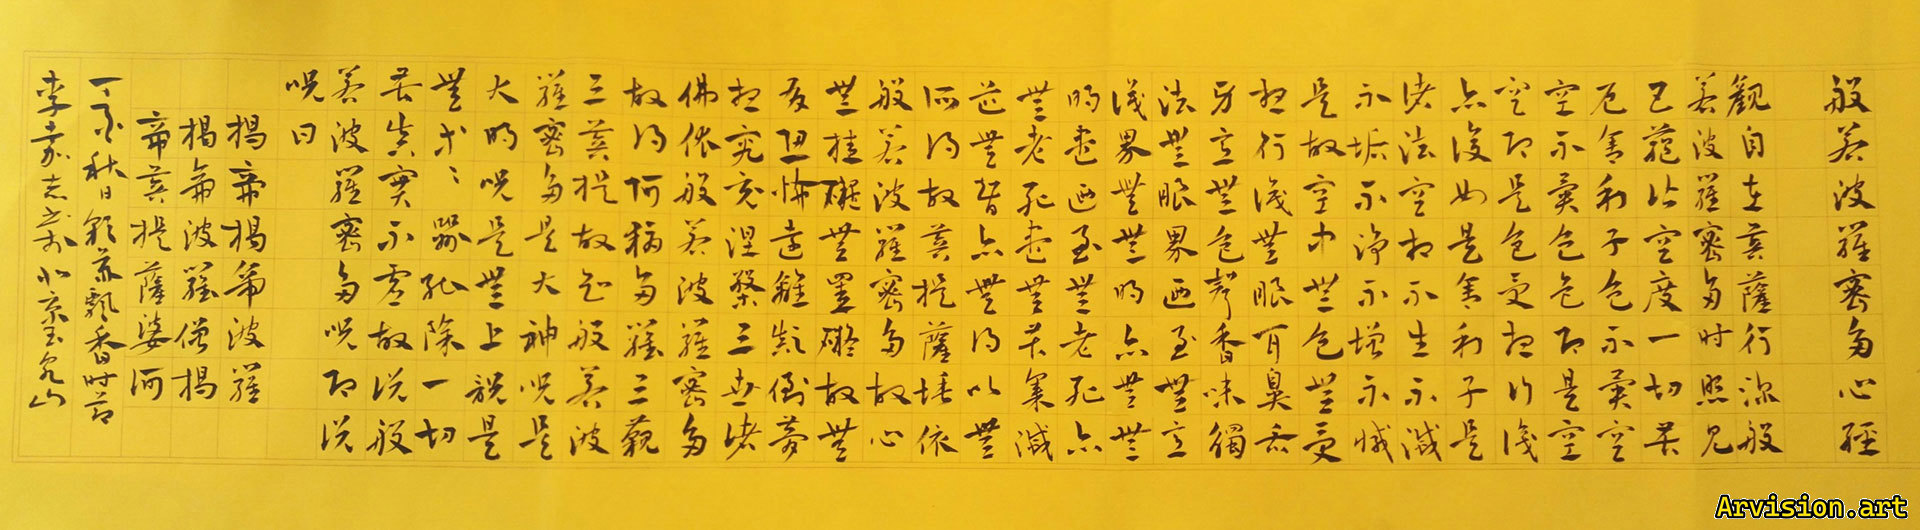 般若波羅密多心經
觀自在菩薩行深般
若波羅密多时照見
五蘊皆空度一切苦
厄舍利子色不異空
空不異色色即是空
空即是色受想行識
亦復如是舍利子是
诸法空相不生不滅
不垢不淨不增不減
是故空中無色無受
想行識無眼耳鼻舌
身意無色聲香味觸
法無眼界乃至無意
識界無無明亦無無
明盡乃至無老死亦
無老死盡無苦集滅
道無智亦無得以無
所得故菩提薩埵依
般若波羅密多故心
無挂礙無罣礙故無
有恐怖遠離顛倒夢
想究竟涅槃三世诸
佛依般若波羅密多
故得阿耨多羅三藐
三菩提故知般若波
羅密多是大神咒是
大明咒是無上咒是
無等等咒能除一切
苦真實不虛故说般
若波羅密多咒即说
咒曰
揭帝揭帝波羅
揭帝波羅僧揭
帝菩提薩婆訶
丁亥秋日飄香时节
李嘉志北京玉泉山
Arvision.art